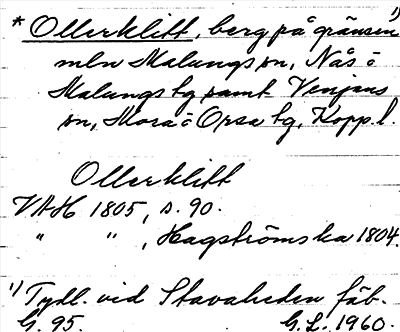 * Ollerklitt, berg på gränsen 1)
mln Malungs sn, Nås o
Malungs tg samt Venjans
sn, Mora o Orsa tg, Kopp. l.
Ollerklitt
VAH 1805, s. 90.
" " , Hagströms ka 1804.
1) Tydl. vid Stavaheden fäb.
G. 95. G. L. 1960.